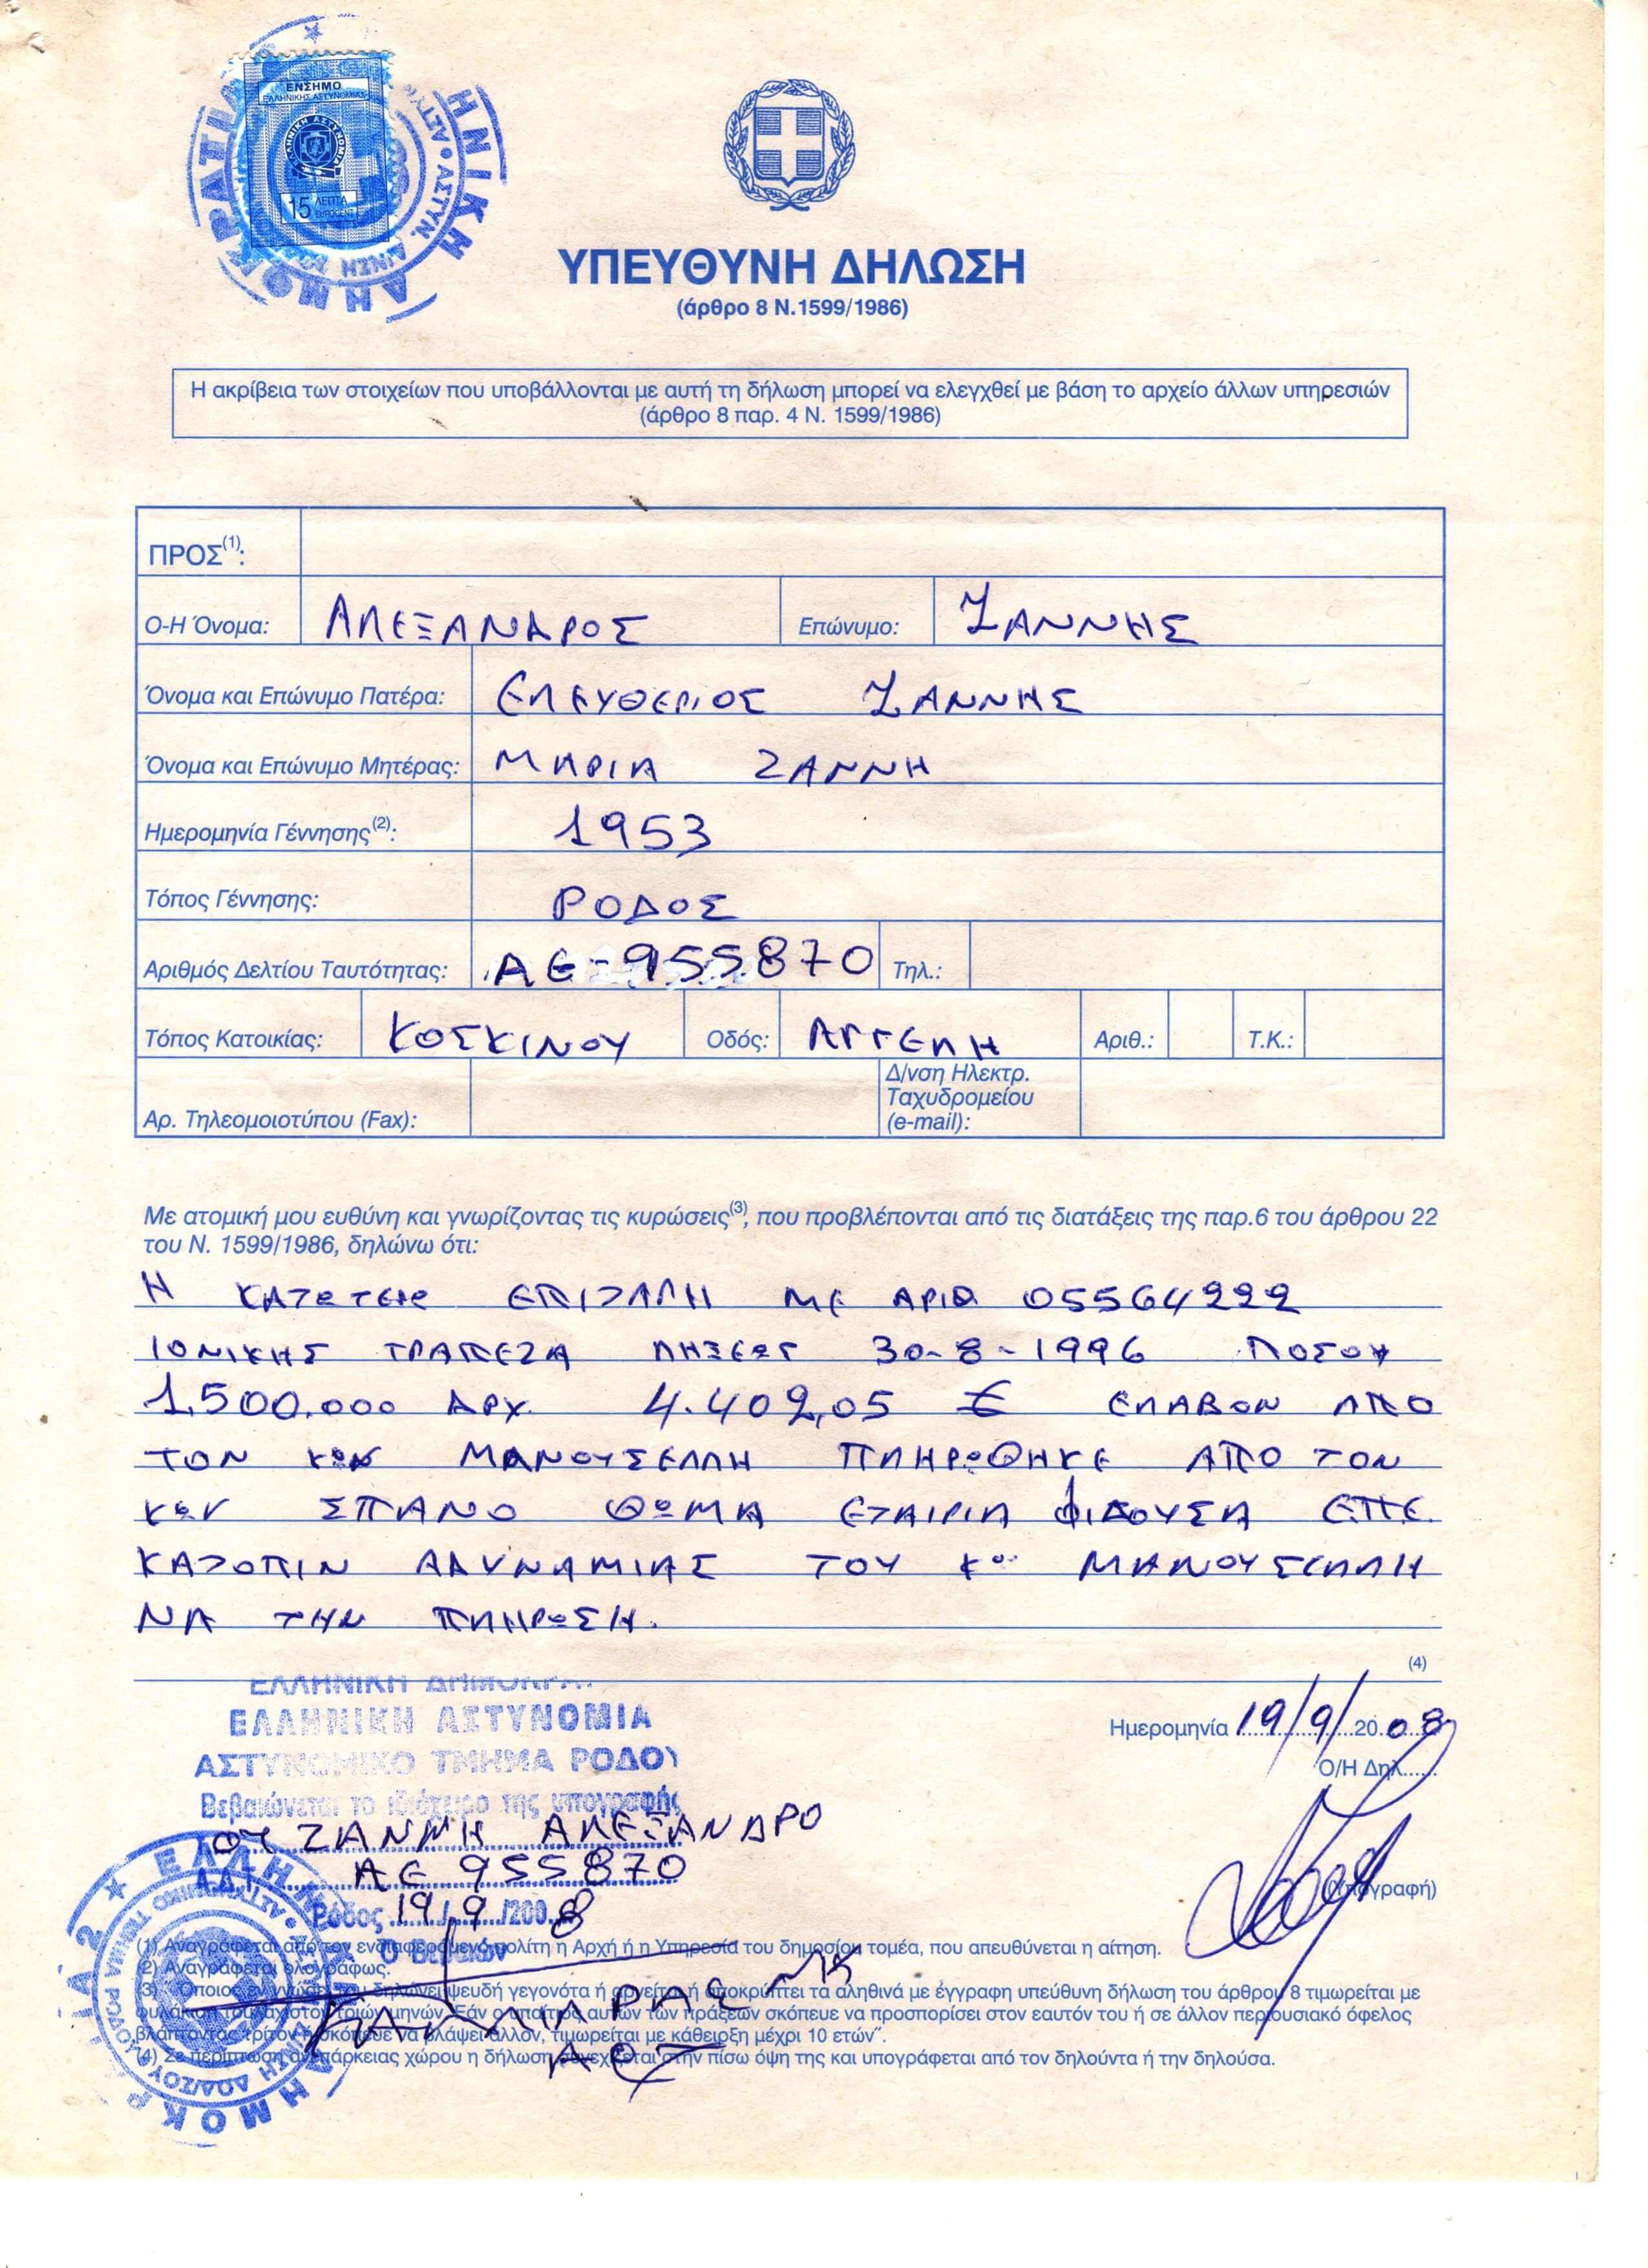 ΕΝΣΗΜΟ
ΕΛΛΗΝΙΚΗΣ ΑΣΤΥΝΟΜΙΑΣ
ΕΛΛΗΝΙΚΗ ΑΣΤΥΝΟΜΙΑ
15 ΛΕΠΤΑ
ΥΠΕΥΘΥΝΗ ΔΗΛΩΣΗ
(άρθρο 8 Ν.1599/1986)
Η ακρίβεια των στοιχείων που υποβάλλονται με αυτή τη δήλωση μπορεί να ελεγχθεί με βάση το αρχείο άλλων υπηρεσιών
(άρθρο 8 παρ. 4 Ν. 1599/1986)
ΠΡΟΣ(1):
Ο-Η Όνομα: ΑΛΕΞΑΝΔΡΟΣ Επώνυμο: ΖΑΝΝΗΣ
Όνομα και Επώνυμο Πατέρα: ΕΛΕΥΘΕΡΙΟΣ ΖΑΝΝΗΣ
Όνομα και Επώνυμο Μητέρας: ΜΑΡΙΑ ΖΑΝΝΗ
Ημερομηνία Γέννησης(2): 1953
Τόπος Γέννησης: ΡΟΔΟΣ
Αριθμός Δελτίου Ταυτότητας: ΑΕ-955870 Τηλ.:
Τόπος Κατοικίας: ΚΟΣΚΙΝΟΥ Οδός: ΑΓΓΕΛΗ Αριθ.: Τ.Κ.:
Αρ. Τηλεομοιοτύπου (Fax): Δ/νση Ηλεκτρ.
Ταχυδρομείου
(e-mail):
Με ατομική μου ευθύνη και γνωρίζοντας τις κυρώσεις(3), που προβλέπονται από τις διατάξεις της παρ.6 του άρθρου 22
του Ν. 1599/1986, δηλώνω ότι:
Η ΕΠΙΤΑΓΗ ΜΕ ΑΡΙΘ 05564222
ΙΟΝΙΚΗΣ ΤΡΑΠΕΖΑ ΛΗΞΕΩΣ 30-8-1996 ΠΟΣΟΥ
1.500.000 ΔΡΧ. 4.402,05 € ΕΛΑΒΟΝ ΑΠΟ
ΤΟΝ ΜΑΝΟΥΣΕΛΛΗ ΠΛΗΡΩΘΗΚΕ ΑΠΟ ΤΟΝ
ΣΠΑΝΟ ΘΩΜΑ ΕΤΑΙΡΙΑ ΦΙΔΟΥΣΑ ΕΠΕ
ΚΑΤΟΠΙΝ ΑΔΥΝΑΜΙΑΣ ΤΟΥ Κου ΜΑΝΟΥΣΕΛΛΗ
ΝΑ ΤΗΝ ΠΛΗΡΩΣΗ.
(4)
ΕΛΛΗΝΙΚΗ ΔΗΜΟΚΡΑ
ΕΛΛΗΝΙΚΗ ΑΣΤΥΝΟΜΙΑ
ΑΣΤΥΝΟΜΙΚΟ ΤΜΗΜΑ ΡΟΔΟΥ
Βεβαιώνεται το ιδιόχειρο της υπογραφής
ΟΥ ΖΑΝΝΗ ΑΛΕΞΑΝΔΡΟ
Α.Δ.Τ. ΑΕ 955870
Ρόδος 19/9/2008
Ο Βεβαιών
Ημερομηνία 19/9/2008
Ο/Η Δηλ......
(Υπογραφή)
(1) Αναγράφεται από τον ενδιαφερόμενο πολίτη η Αρχή ή η Υπηρεσία του δημοσίου τομέα, που απευθύνεται η αίτηση.
(2) Αναγράφεται ολογράφως.
(3) "Όποιος εν γνώσει του δηλώνει ψευδή γεγονότα ή αρνείται ή αποκρύπτει τα αληθινά με έγγραφη υπεύθυνη δήλωση του άρθρου 8 τιμωρείται με
φυλάκιση τουλάχιστον τριών μηνών. Εάν ο υπαίτιος αυτών των πράξεων σκόπευε να προσπορίσει στον εαυτόν του ή σε άλλον περιουσιακό όφελος
βλάπτοντας τρίτον ή σκόπευε να βλάψει άλλον, τιμωρείται με κάθειρξη μέχρι 10 ετών".
(4) Σε περίπτωση ανεπάρκειας χώρου η δήλωση συνεχίζεται στην πίσω όψη της και υπογράφεται από τον δηλούντα ή την δηλούσα.